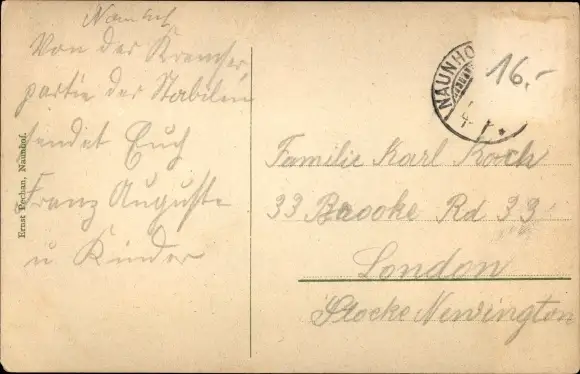 Von der Kremser
partie der Stabilen
sendet Euch
Franz Auguste
u Kinder
Ernst Pechan, Naunhof.
NAUNHO
16.-
Familie Karl Koch
33 Brooke Rd 33
London
Stocke Newington